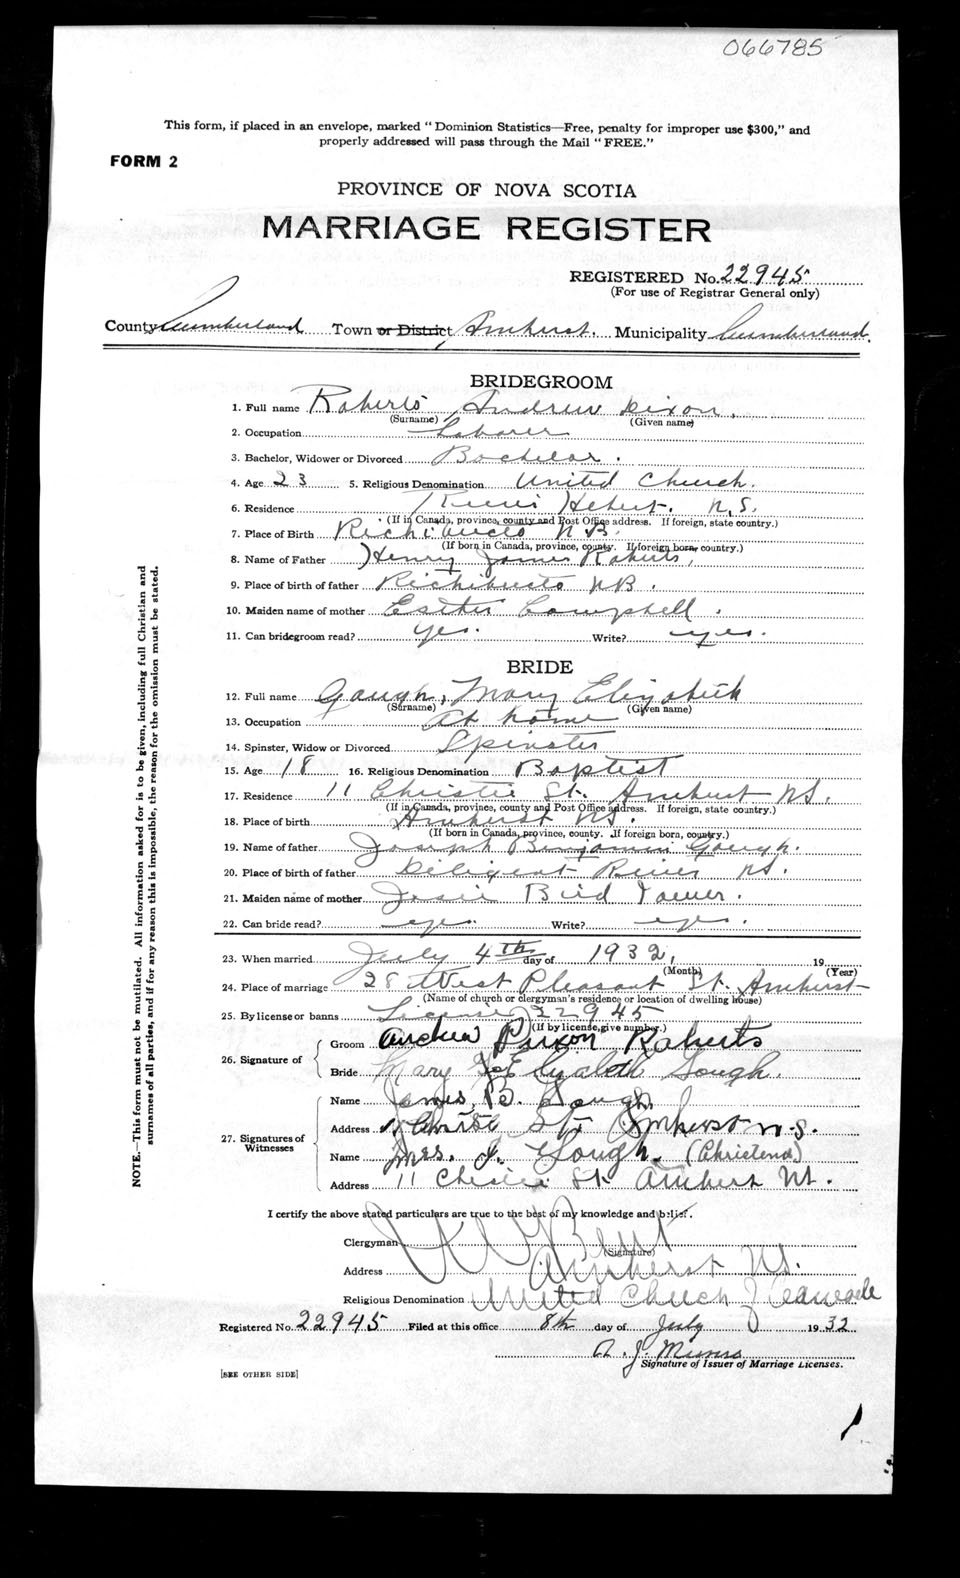 066785
This form, if placed in an envelope, marked "Dominion Statistics—Free, penalty for improper use $300," and
properly addressed will pass through the Mail "FREE."
FORM 2
PROVINCE OF NOVA SCOTIA
MARRIAGE REGISTER
REGISTERED No. 22945
(For use of Registrar General only)
County Cumberland Town or District Amherst. Municipality Cumberland.
BRIDEGROOM
1. Full name Roberts Andrew Dixon.
(Surname) (Given name)
2. Occupation Laborer
3. Bachelor, Widower or Divorced Bachelor.
4. Age 23 5. Religious Denomination United Church.
6. Residence Hebert. N.S.
(If in Canada, province, county and Post Office address. If foreign, state country.)
7. Place of Birth Richibucto N.B.
(If born in Canada, province, county. If foreign born, country.)
8. Name of Father Henry James Roberts,
9. Place of birth of father Richibucto NB.
10. Maiden name of mother Esther Campbell.
11. Can bridegroom read? yes. Write? yes.
BRIDE
12. Full name Gough, Mary Elizabeth
(Surname) (Given name)
13. Occupation At home
14. Spinster, Widow or Divorced Spinster
15. Age 18 16. Religious Denomination Baptist
17. Residence 11 Christie St. Amherst NS.
(If in Canada, province, county and Post Office address. If foreign, state country.)
18. Place of birth Amherst NS.
(If born in Canada, province, county. If foreign born, country.)
19. Name of father Joseph Benjamin Gough.
20. Place of birth of father Diligent River NS.
21. Maiden name of mother Jessie Bird
22. Can bride read? yes. Write? yes.
23. When married July 4th day of 1932, 19
(Month) (Year)
24. Place of marriage 28 West Pleasant St. Amherst
(Name of church or clergyman's residence or location of dwelling house)
25. By license or banns License 22945
(If by license, give number.)
26. Signature of
Groom Andrew Dixon Roberts
Bride Mary Elizabeth Gough.
27. Signatures of Witnesses
Name James B. Gough
Address Christie St Amherst n.s.
Name Mrs. J. Gough.
Address 11 St. Amherst NS.
I certify the above stated particulars are true to the best of my knowledge and belief.
Clergyman
(Signature)
Address Amherst NS.
Religious Denomination United Church of Canada
Registered No. 22945 Filed at this office 8th day of July 1932
A. J. Munro
Signature of Issuer of Marriage Licenses.
[SEE OTHER SIDE]
NOTE.—This form must not be mutilated. All information asked for is to be given, including full Christian and
surnames of all parties, and if for any reason this is impossible, the reason for the omission must be stated.